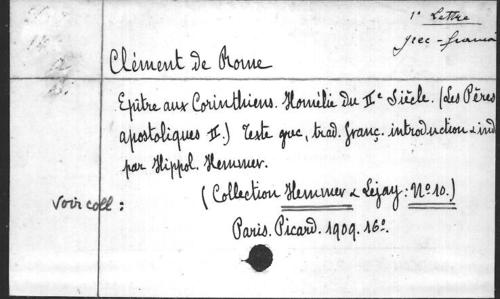 1e Lettre
grec-français
Clément de Rome
Epître aux Corinthiens. Homélie du IIe Siècle. (Les Pères
apostoliques II.) Texte grec, trad. franç. introduction & ind
par Hippol. Hemmer.
(Collection Hemmer & Lejay: No 10.)
Voir coll:
Paris. Picard. 1909. 16o.